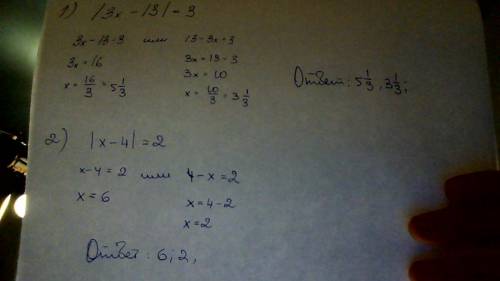 1) |3x-13|=3
3x-13=3 или 13-3x=3
3x=16 3x=13-3
x=16/3=5 1/3 3x=10
x=10/3=3 1/3
Ответ: 5 1/3, 3 1/3;
2) |x-4|=2
x-4=2 или 4-x=2
x=6 x=4-2
x=2
Ответ: 6; 2,